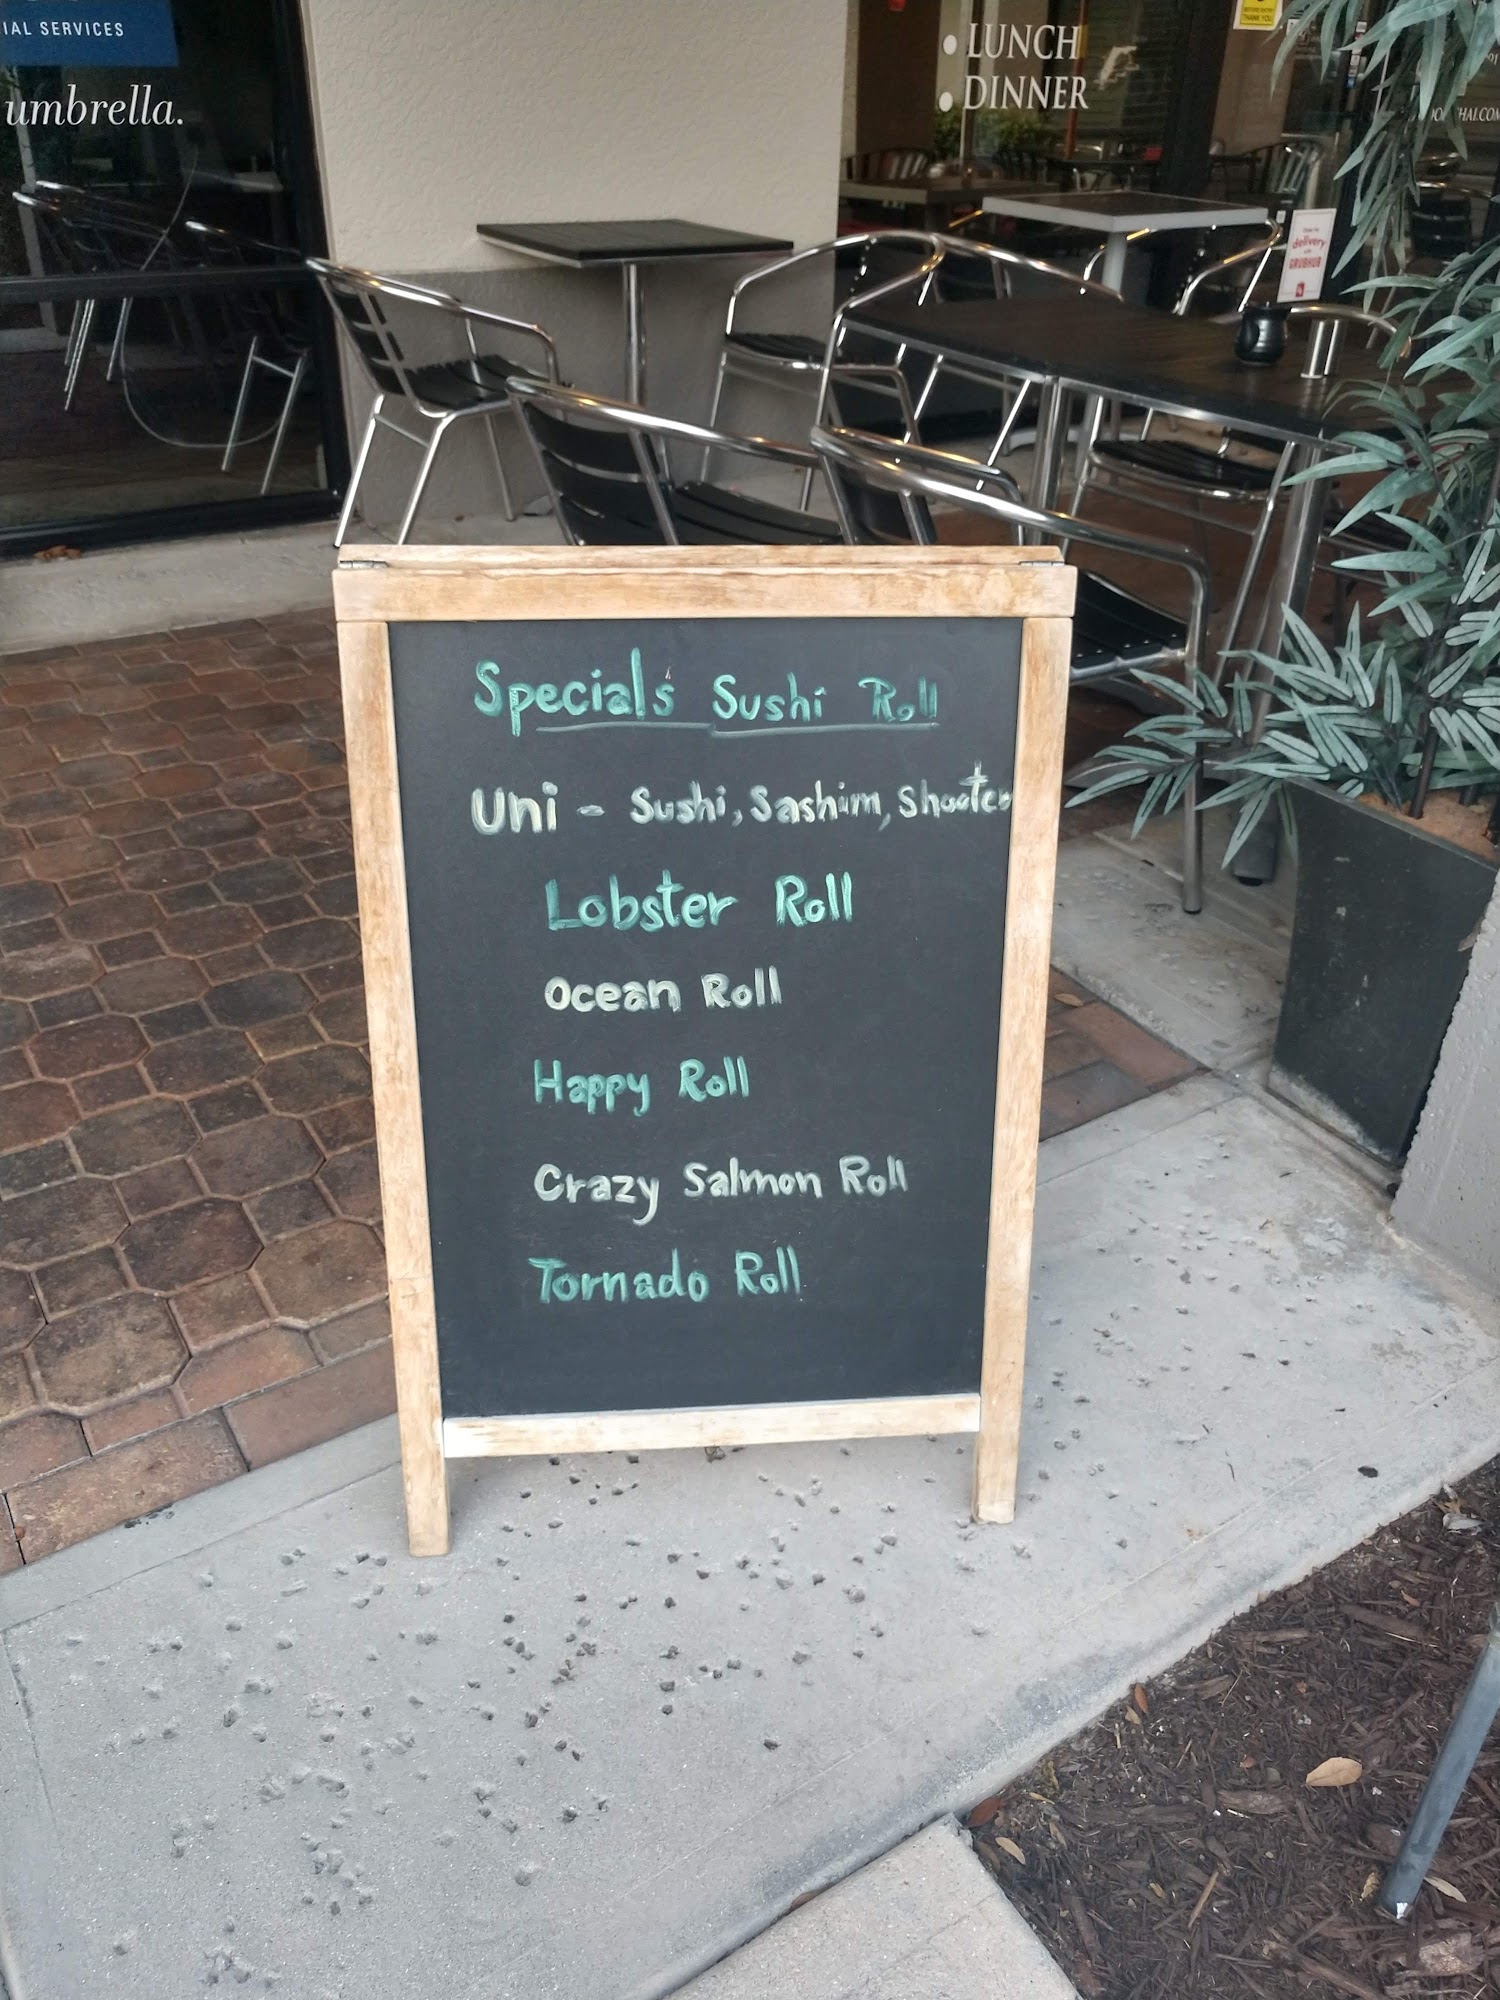 IAL SERVICES
umbrella.
• LUNCH
• DINNER
THANK YOU
delivery
GRUBHUB
Specials Sushi Roll
Uni - Sushi, Sashim, Shooter
Lobster Roll
Ocean Roll
Happy Roll
Crazy Salmon Roll
Tornado Roll